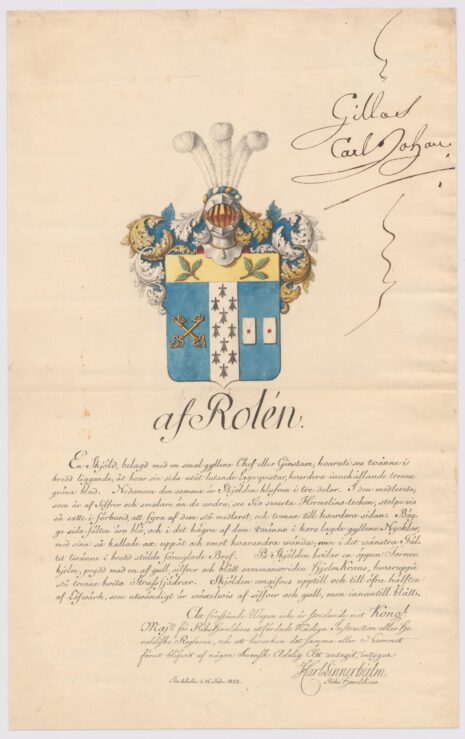 Gillas
Carl Johan
af Rolén.
En Sköld, belagd med en smal gyllene Chef eller Ginstam, hvaruti ses tvänne i
bredd liggande, åt hvar sin sida utåt lutande lagerqvistar, hvardera innehållande trenne
gröna blad. Nedanom den samma är Skölden klufven i tre delar. I den medlersta,
som är af Silfver och smalare än de andra, ses Tio svarta Hermelins-tecken, stolpe vis
så satte i förbund, att fyra af dem stå medlerst, och trenne till hvardera sidan. Båg-
ge sido fälten äro blå, och i det högra af dem tvänne i kors lagde gyllene Nycklar,
med sina så kallade ax uppåt och emot hvarandra vände; men i det vänstra Fäl-
tet tvänne i bredd stälde förseglade Bref. På Skölden hvilar en öppen Torner
hjelm, prydd med en af guld, silfver och blått sammanvriden Hjelmkrans, hvaruppå
stå trenne hvita Strutsfjädrar. Skölden omgifves upptill och till öfre hälften
af Löfsverk, som utvändigt är växelvis af silfver och guld, men innantill blått.
At förestående Wapen icke är stridande mot Kongl.
Maj:ts för Riks Heraldicus utfärdade Nådige Instruction eller He-
raldiske Reglorne, och att hvarken det samma eller Namnet
förut blifvit af någon Svensk Adelig Ätt antagit, intygar
Stockholm d. 1822.
Carl Linnerhielm
Riks Heraldicus